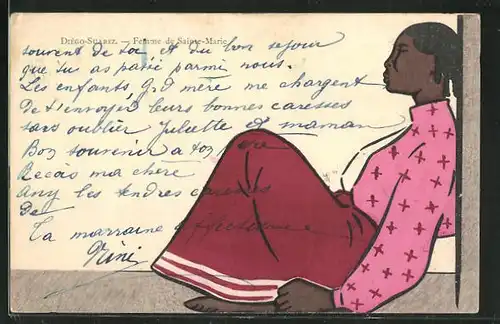 DIÉGO-SUAREZ. — Femme de Sainte-Marie
souvent de toi et du bon séjour
que tu as passé parmi nous.
Les enfants, Gd mère me chargent
De t'envoyer leurs bonnes caresses
sans oublier Juliette et maman
Bon souvenir à ton père
Reçois ma chère
Any les tendres caresses
de
Ta marraine affectionnée
Nini